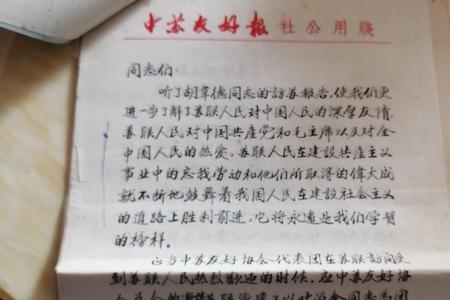 中苏友好報社公用牋
同志们：
听了胡韋德同志的訪苏报告，使我们更
進一步了解了苏联人民对中国人民的深厚友情，
苏联人民对中国共產党和毛主席以及对全
中国人民的热爱。苏联人民在建設共產主义
事业中的忘我劳动和他们所取得的偉大成
就不断地鼓舞着我国人民在建設社会主义
的道路上胜利前進，它将永遠是我们学習
的榜样。
应当中苏友好协会代表团在苏联訪问受
到苏联人民热烈歡迎的时候，应中苏友好协